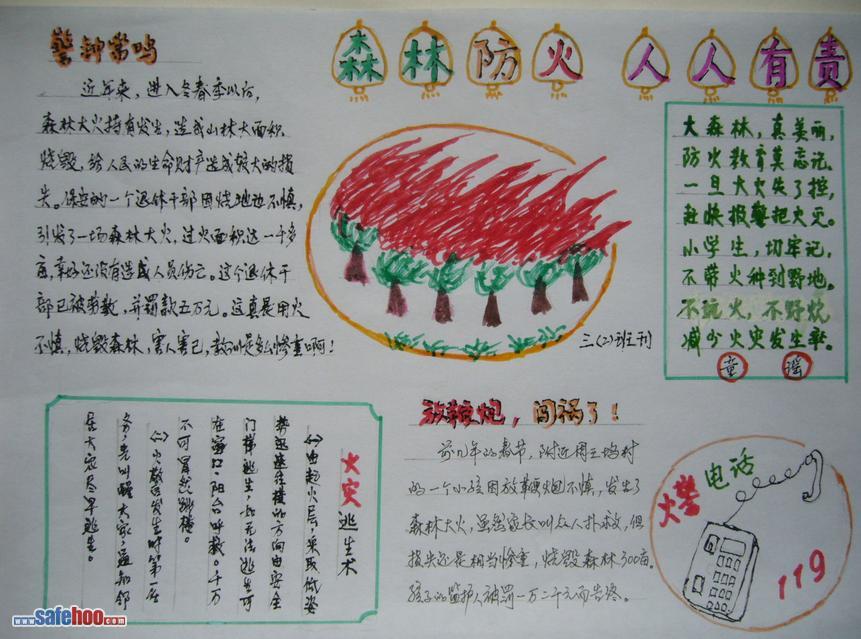 警钟常鸣
近年来，进入冬春季以后，
森林大火持有发生，造成山林大面积
烧毁，给人民的生命财产造成较大的损
失。保安的一个退休干部因烧地边不慎，
引发了一场森林大火，过火面积达一千多
亩，幸好还没有造成人员伤亡。这个退休干
部已被劳教，并罚款五万元。这真是用火
不慎，烧毁森林，害人害己，教训是多么惨重啊！
森林防火 人人有责
三(2)班刊
大森林，真美丽，
防火教育莫忘记。
一旦大火失了控，
赶快报警把火灭。
小学生，切牢记，
不带火种到野地。
不玩火，不野炊，
减少火灾发生率。
童谣
火灾逃生术
(一)由起火层，采取低姿
势迅速往楼的方向由安全
门梯逃生，如无法逃生可
在窗口、阳台呼救。千万
不可冒然跳楼。
(二)火散发生时第一任
务，先叫醒大家，通知邻
居火灾尽早逃生。
放鞭炮，闯祸了！
前几年的春节，附近周王坞村
的一个小孩因放鞭炮不慎，发生了
森林大火，虽然家长叫众人扑救，但
损失还是相当惨重，烧毁森林300亩。
孩子的监护人被罚一万二千元而告终。
火警电话
119
www.safehoo.com